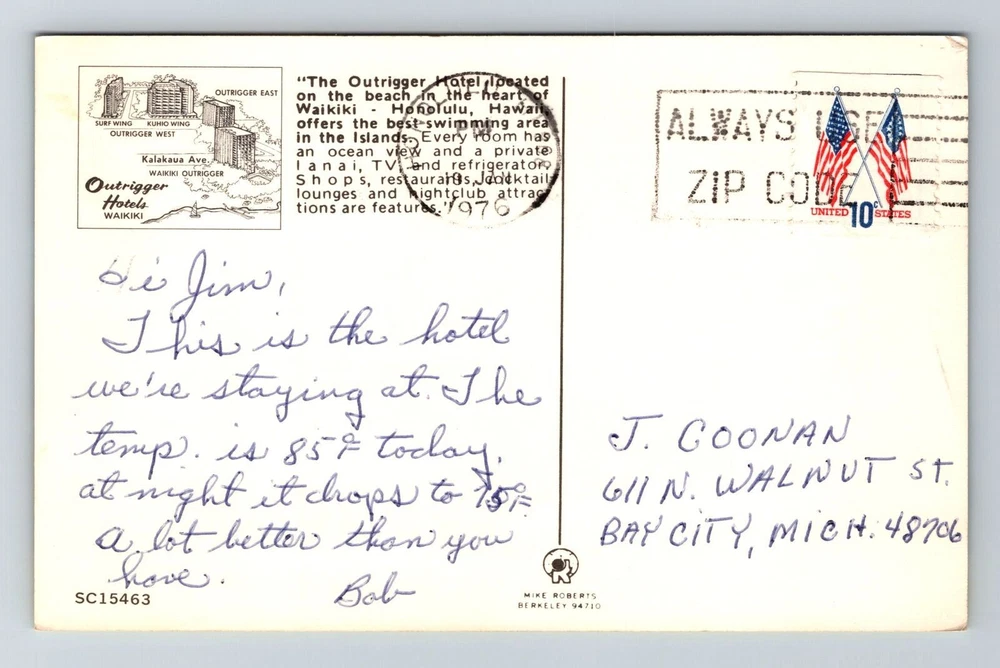 SURF WING KUHIO WING
OUTRIGGER WEST
OUTRIGGER EAST
Kalakaua Ave.
WAIKIKI OUTRIGGER
Outrigger
Hotels
WAIKIKI
"The Outrigger Hotel located
on the beach in the heart of
Waikiki - Honolulu, Hawaii,
offers the best swimming area
in the Islands. Every room has
an ocean view and a private
lanai, TV and refrigerator.
Shops, restaurants, cocktail
lounges and nightclub attrac-
tions are features."
PM
19 JAN
1976
ALWAYS USE
ZIP CODE
UNITED 10c STATES
Hi Jim,
This is the hotel
we're staying at. The
temp. is 85°F today,
at night it drops to 75°F
A lot better than you
have.
Bob
J. COONAN
611 N. WALNUT ST.
BAY CITY, MICH. 48706
SC15463
MIKE ROBERTS
BERKELEY 94710